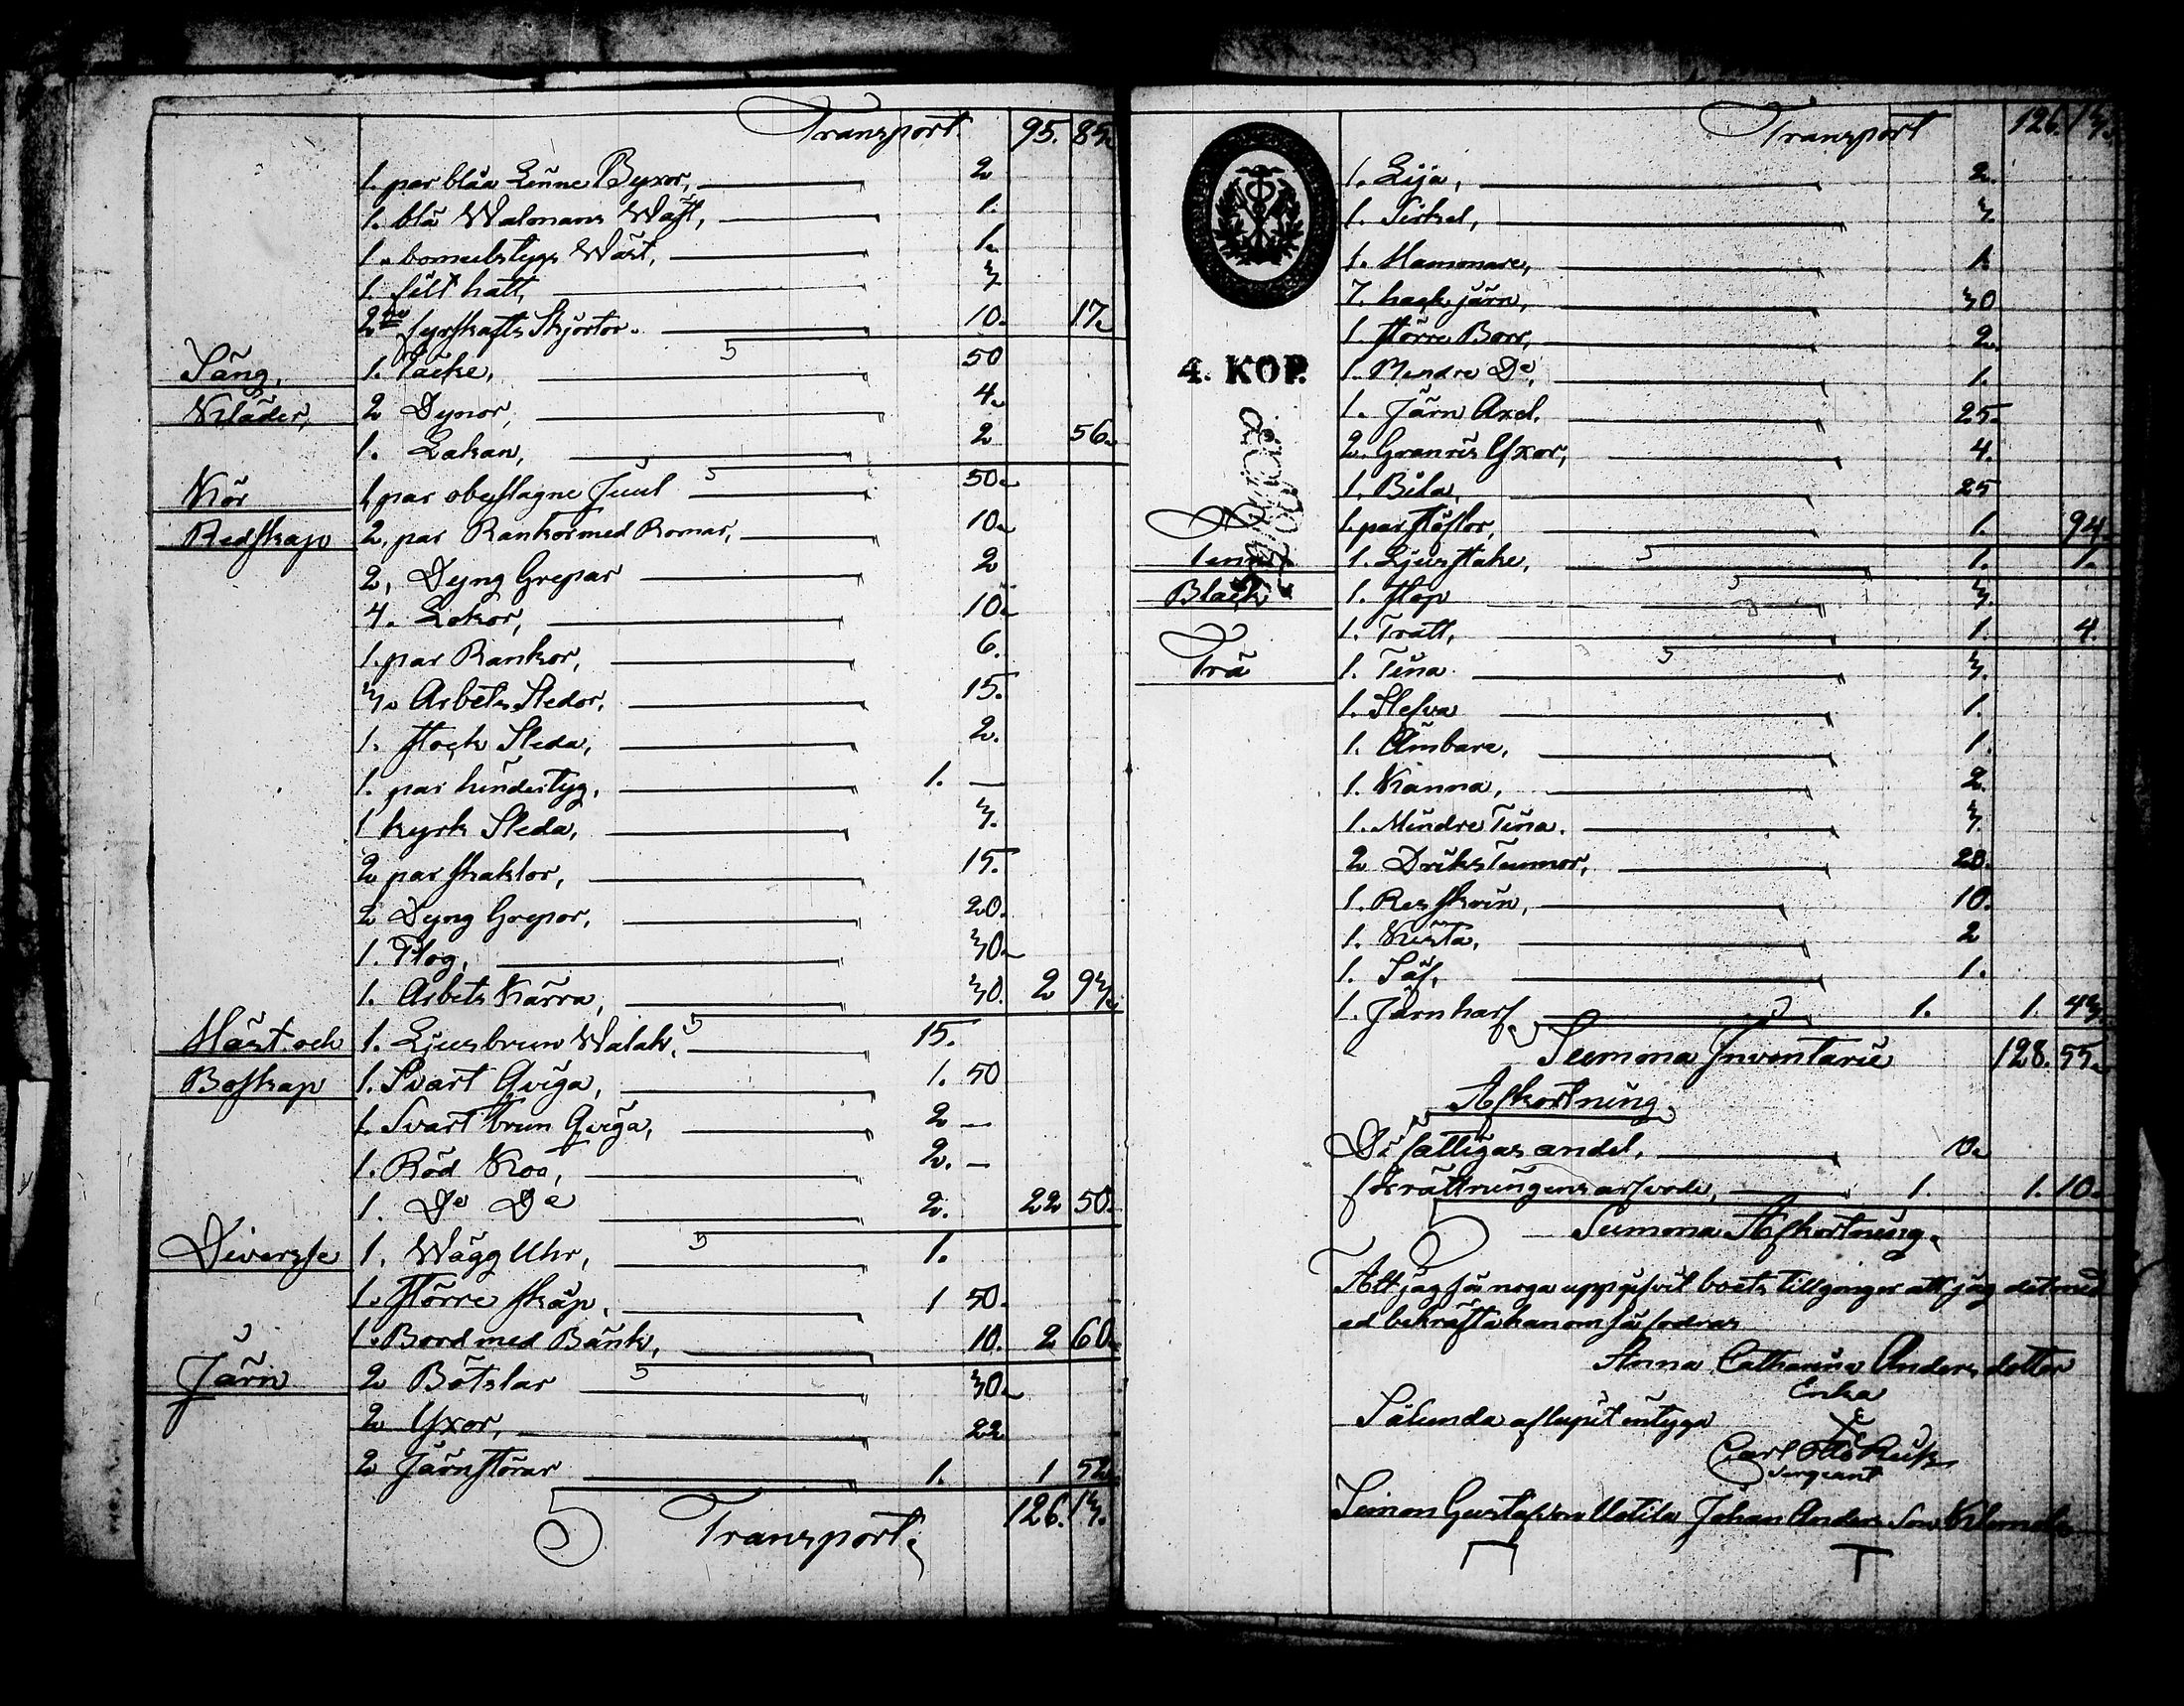 Transport 95. 85
1. par blåa Linne Byxor, 2
1. blå Walmans Wäst, 1.
1. bomulstygs Wäst, 1.
1. filt hatt, 3
2ne fyrskafts Skjortor. 10. 17.
Säng, 1. Täcke, 50
Kläder, 2 Dynor, 4.
1. Lakan, 2 56.
Kör 1 par obeslagne Juul 50.
Redskap 2. par Rankor med Romar, 10.
2, Dyng Grepar 2
4. Lokor, 10.
1. par Rankor, 6.
3. Arbets Sledor, 15.
1. Stock Sleda, 2.
1. par hindertyg, 1. —
1 kyrk Sleda, 3.
2 par skaklor, 15.
2 Dyng Grepor, 20.
1. Plog, 30.
1. Arbets Kärra, 30. 2 93.
Häst och 1. Ljusbrun Walak, 15.
Boskap 1. Svart Qviga, 1. 50
1. Svart brun Qviga, 2 —
1. Röd Koo, 2. —
1. Do Do 2. 22 50.
Diverse 1. Wägg Uhr, 1.
1. Större skåp, 1 50.
1. Bord med Bänk, 10. 2 60.
Järn 2 Bötslar 30.
2 Yxor, 22
2 Järnstörar 1. 1 52
Transport. 126. 13.
Transport 126. 13.
4. KOP.
1. Lija, 2.
1. Sirkel, 3.
1. Hammare, 1.
7. hack järn, 30
1. Större Borr, 2.
1. Mindre Do, 1.
1. Järn Axel. 25.
2. Granris Yxor, 4.
1. Bila, 25
1. par Stöflor, 1. 94.
Tenn 1. Ljusstake, 1. 1.
Bläck 1. Stop 3.
1. Tratt, 1. 4.
Trä 1. Tina 3.
1. Slefva 1.
1. Ämbare, 1.
1. Kanna, 2.
1. Mindre Tina. 3.
2 Driks Tunnor, 20.
1. Res skrin, 10.
1. Kista, 2
1. Såf, 1.
1. Järnharf 1. 1. 43.
Summa Inventarii 128. 55.
Afkortning.
De fattigas andel, 10.
förrättningens arfvode, 1. 1. 10.
Summa Afkortning.
Att jag så noga uppgifvit boets tillgångar att jag det med
ed bekräfta kan om så fodras
Anna Catharina Anders dotter
Enka
Sålunda aflupit intyga
Carl
Sergeant
Simon Gustafsson Uotila Johan Anders Son Klemola